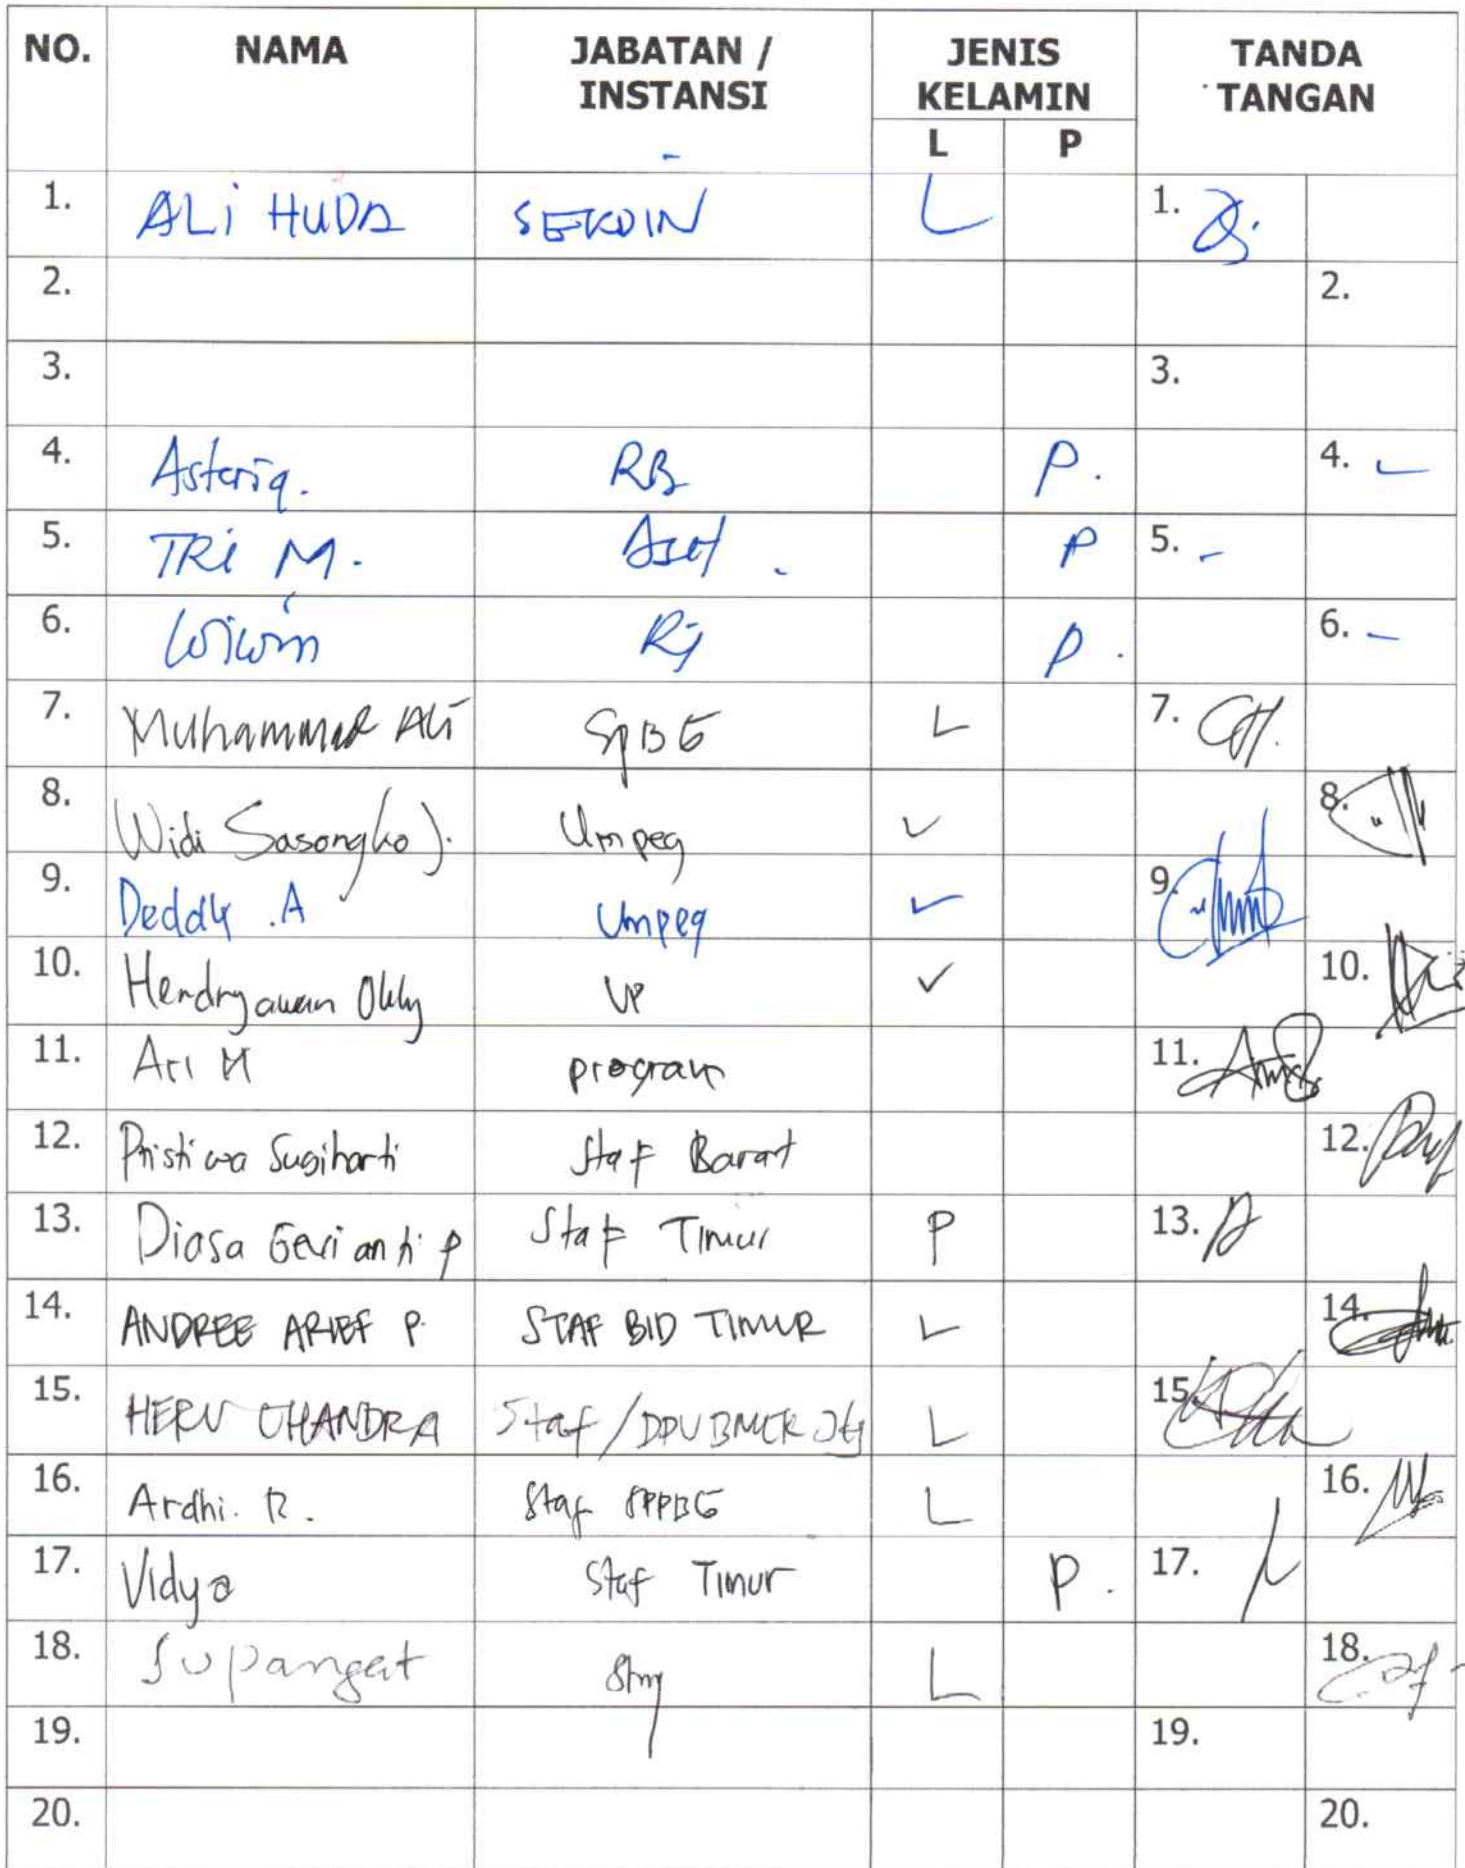 NO. NAMA JABATAN / INSTANSI JENIS KELAMIN TANDA TANGAN
L P
1. ALi HUDA SEKDIN L 1.
2. 2.
3. 3.
4. RB P. 4. -
5. TRi M. Aset. P 5. -
6. Wiwin P. 6. -
7. Muhammad Ali L 7.
8. Widi Sasongko J. Umpeg ✓ 8.
9. Deddy .A Umpeg ✓ 9.
10. Hendryawan ✓ 10.
11. Ari M program 11.
12. Pristiwa Sugiharti Staf Barat 12.
13. Diasa Gerianti P Staf Timur P 13.
14. ANDREE ARIEF P. STAF BID TIMUR L 14.
15. HERU CHANDRA Staf/DPUBMCK Jtg L 15.
16. Ardhi. R. Staf L 16.
17. Vidya Staf Timur P. 17.
18. Supangat L 18.
19. 19.
20. 20.